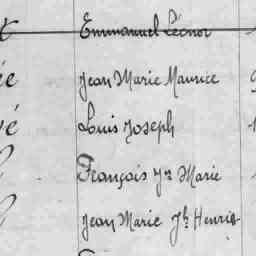 Emmanuel Léonor
ée Jean Marie Maurice
vé Louis Joseph
François Jn Marie
Jean Marie Jh Henri